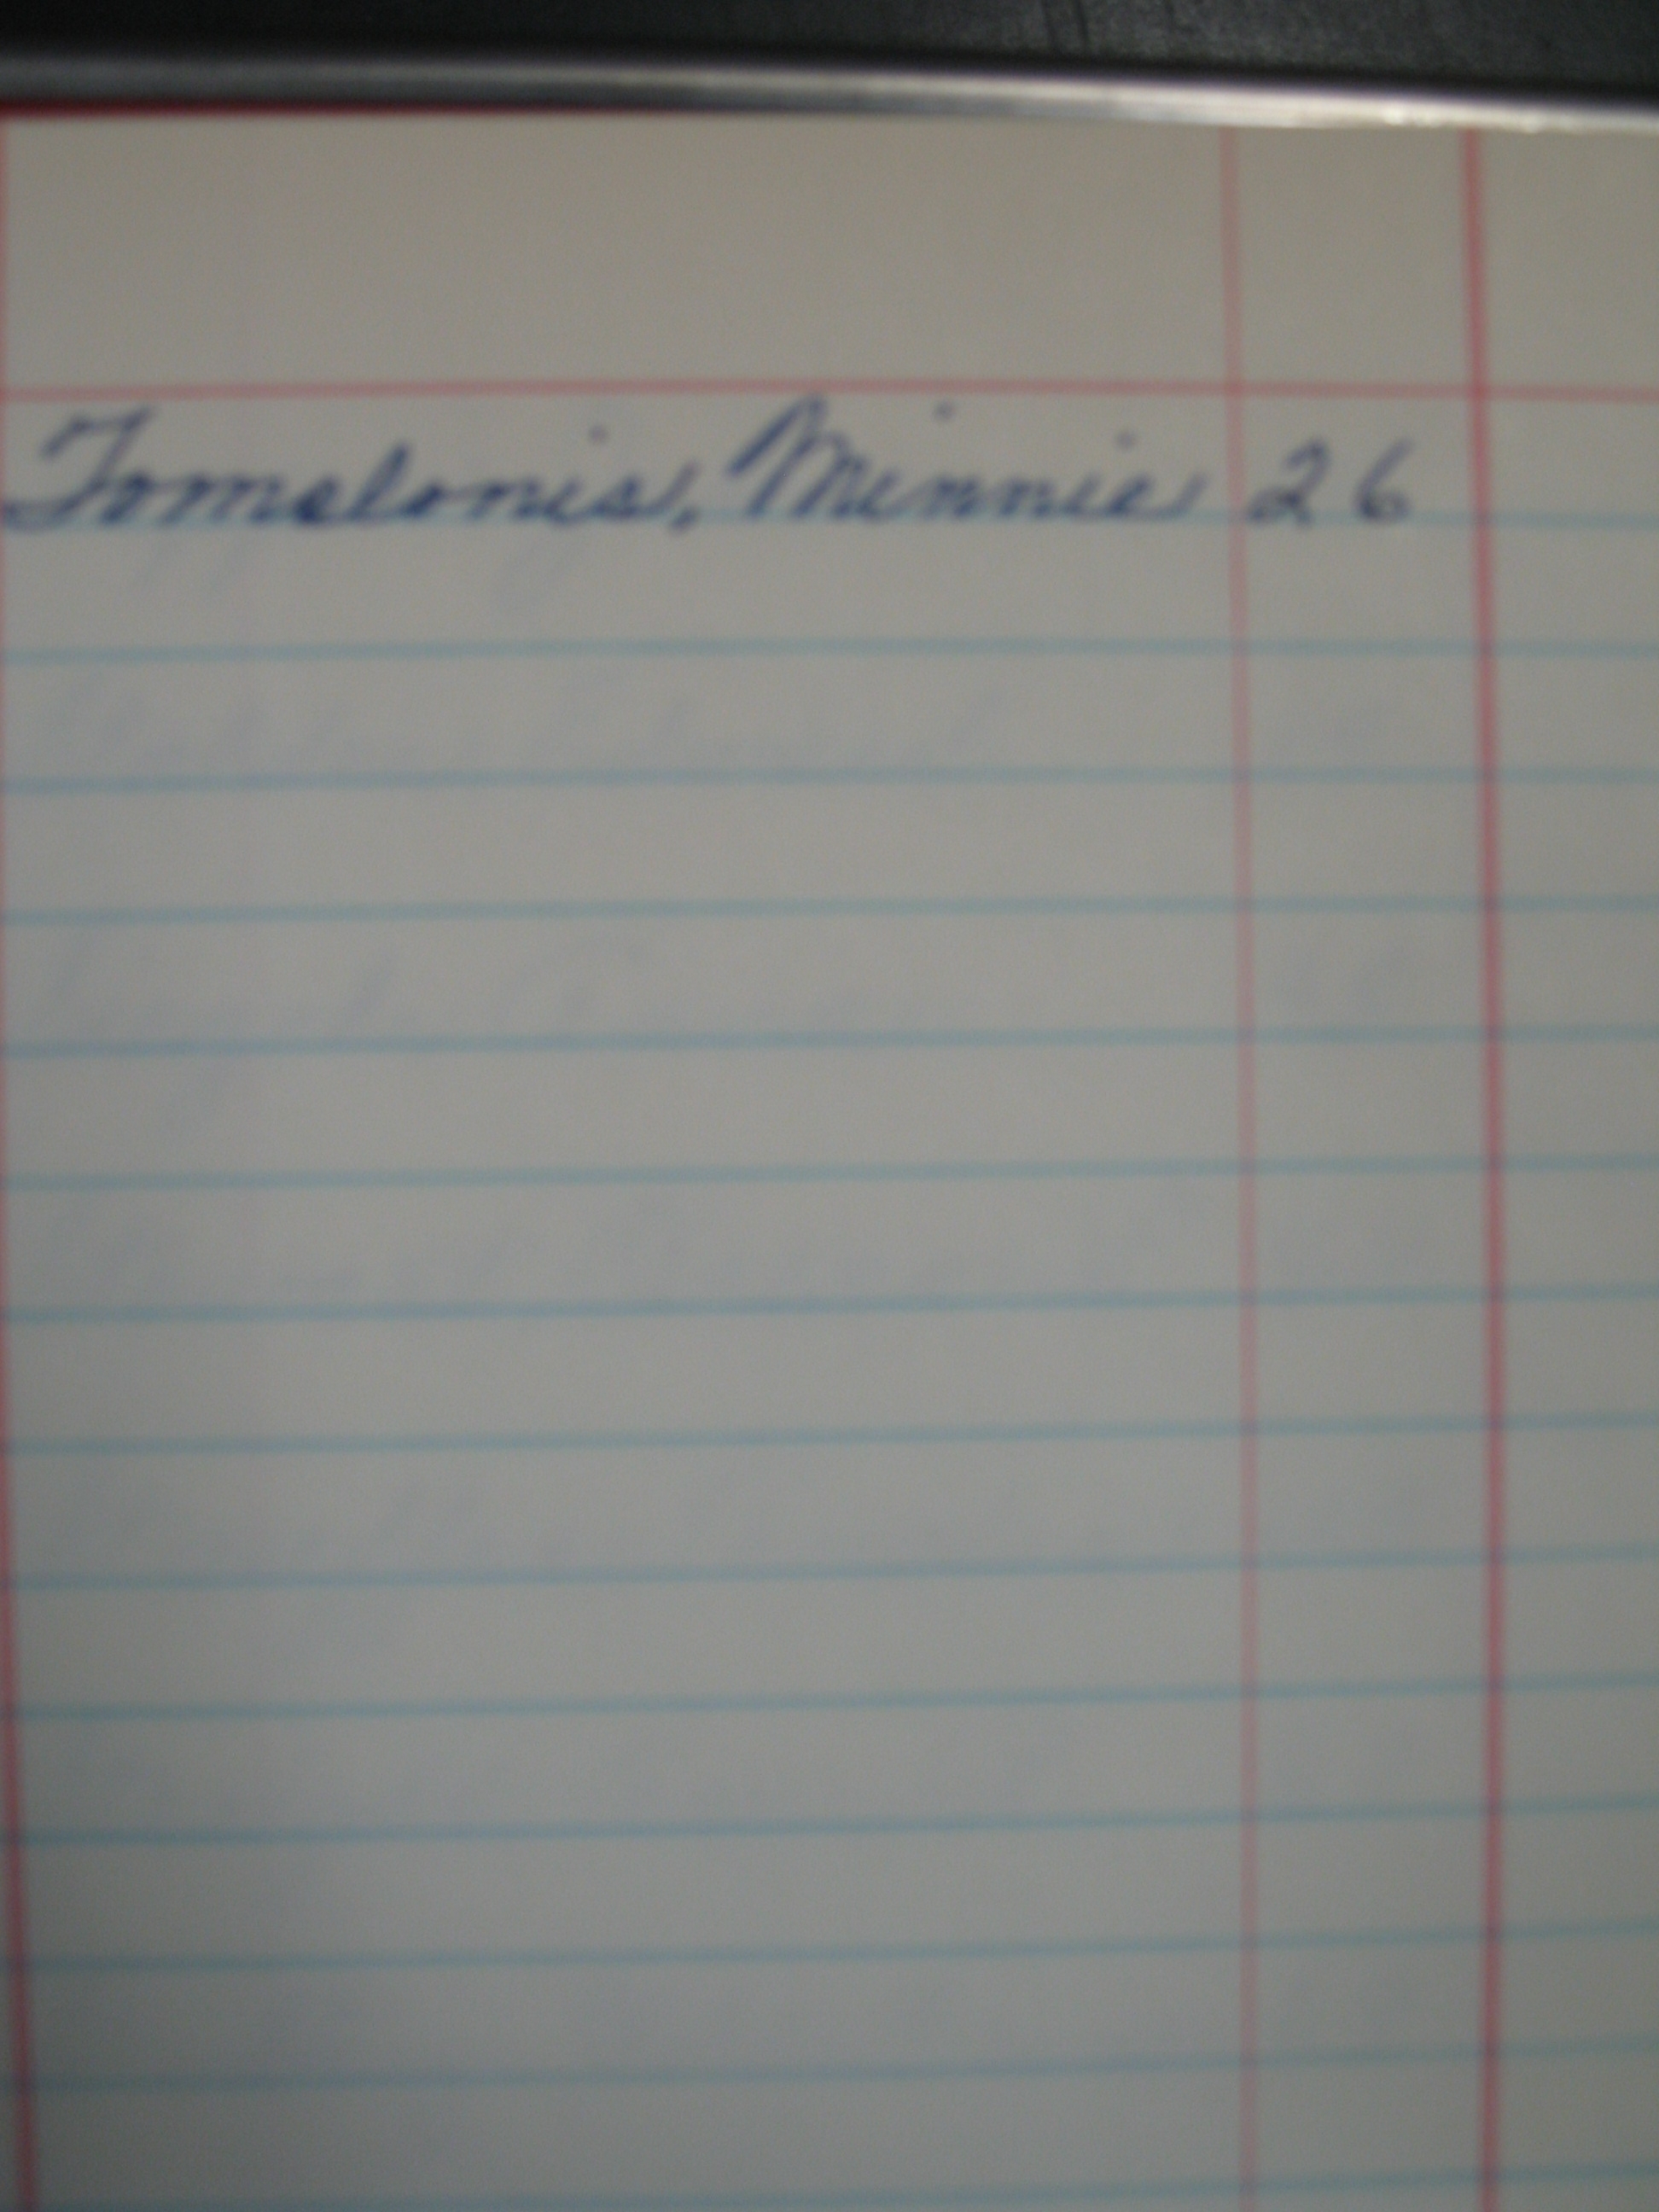 Tomelonis, Minnie 26